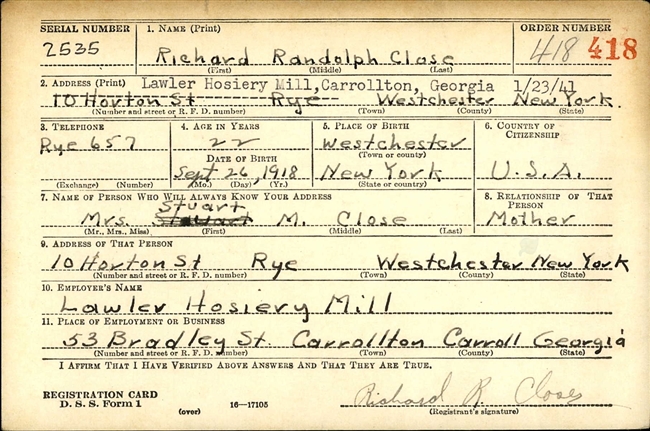 SERIAL NUMBER 1. NAME (Print) ORDER NUMBER
2535 Richard Randolph Close 418 418
(First) (Middle) (Last)
2. ADDRESS (Print) Lawler Hosiery Mill, Carrollton, Georgia 1/23/41
10 Horton St Rye Westchester New York.
(Number and street or R. F. D. number) (Town) (County) (State)
3. TELEPHONE 4. AGE IN YEARS 5. PLACE OF BIRTH 6. COUNTRY OF CITIZENSHIP
Rye 657 22 Westchester
DATE OF BIRTH (Town or county)
Sept 26, 1918 New York U.S.A.
(Exchange) (Number) (Mo.) (Day) (Yr.) (State or country)
7. NAME OF PERSON WHO WILL ALWAYS KNOW YOUR ADDRESS 8. RELATIONSHIP OF THAT PERSON
Stuart
Mrs. M. Close Mother
(Mr., Mrs., Miss) (First) (Middle) (Last)
9. ADDRESS OF THAT PERSON
10 Horton St Rye Westchester New York
(Number and street or R. F. D. number) (Town) (County) (State)
10. EMPLOYER'S NAME
Lawler Hosiery Mill
11. PLACE OF EMPLOYMENT OR BUSINESS
53 Bradley St. Carrollton Carroll Georgia
(Number and street or R. F. D. number) (Town) (County) (State)
I AFFIRM THAT I HAVE VERIFIED ABOVE ANSWERS AND THAT THEY ARE TRUE.
REGISTRATION CARD
D. S. S. Form 1 (over) 16—17105 Richard R. Close
(Registrant's signature)